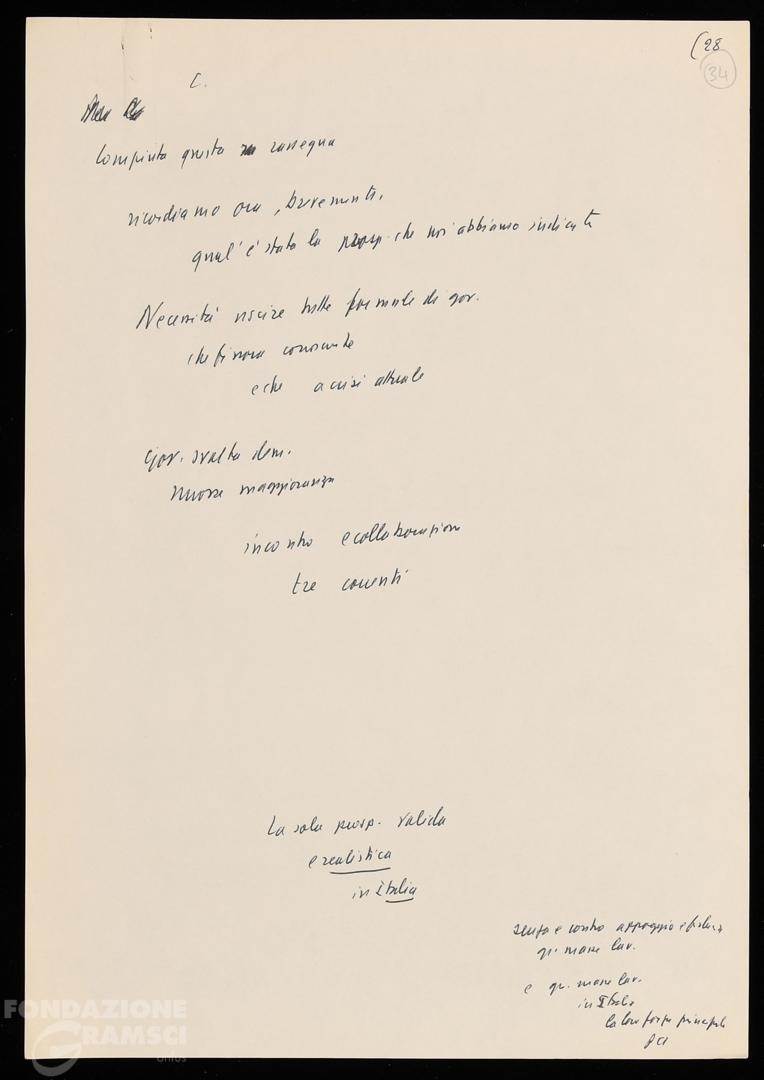 (28
34
C.
Compiuta questa rassegna
ricordiamo ora, brevemente,
qual'è stata la prosp. che noi abbiamo indicata
Necessità uscire dalle formule di gov.
che finora conosciute
e che a crisi attuale
Gov. svolta dem.
nuova maggioranza
incontro e collaborazione
tre correnti
La sola prosp. valida
e realistica
in Italia
senza e contro appoggio e fiducia
gr. masse lav.
e gr. masse lav.
in Italia
la loro forza principale
PCI
FONDAZIONE
GRAMSCI
onlus